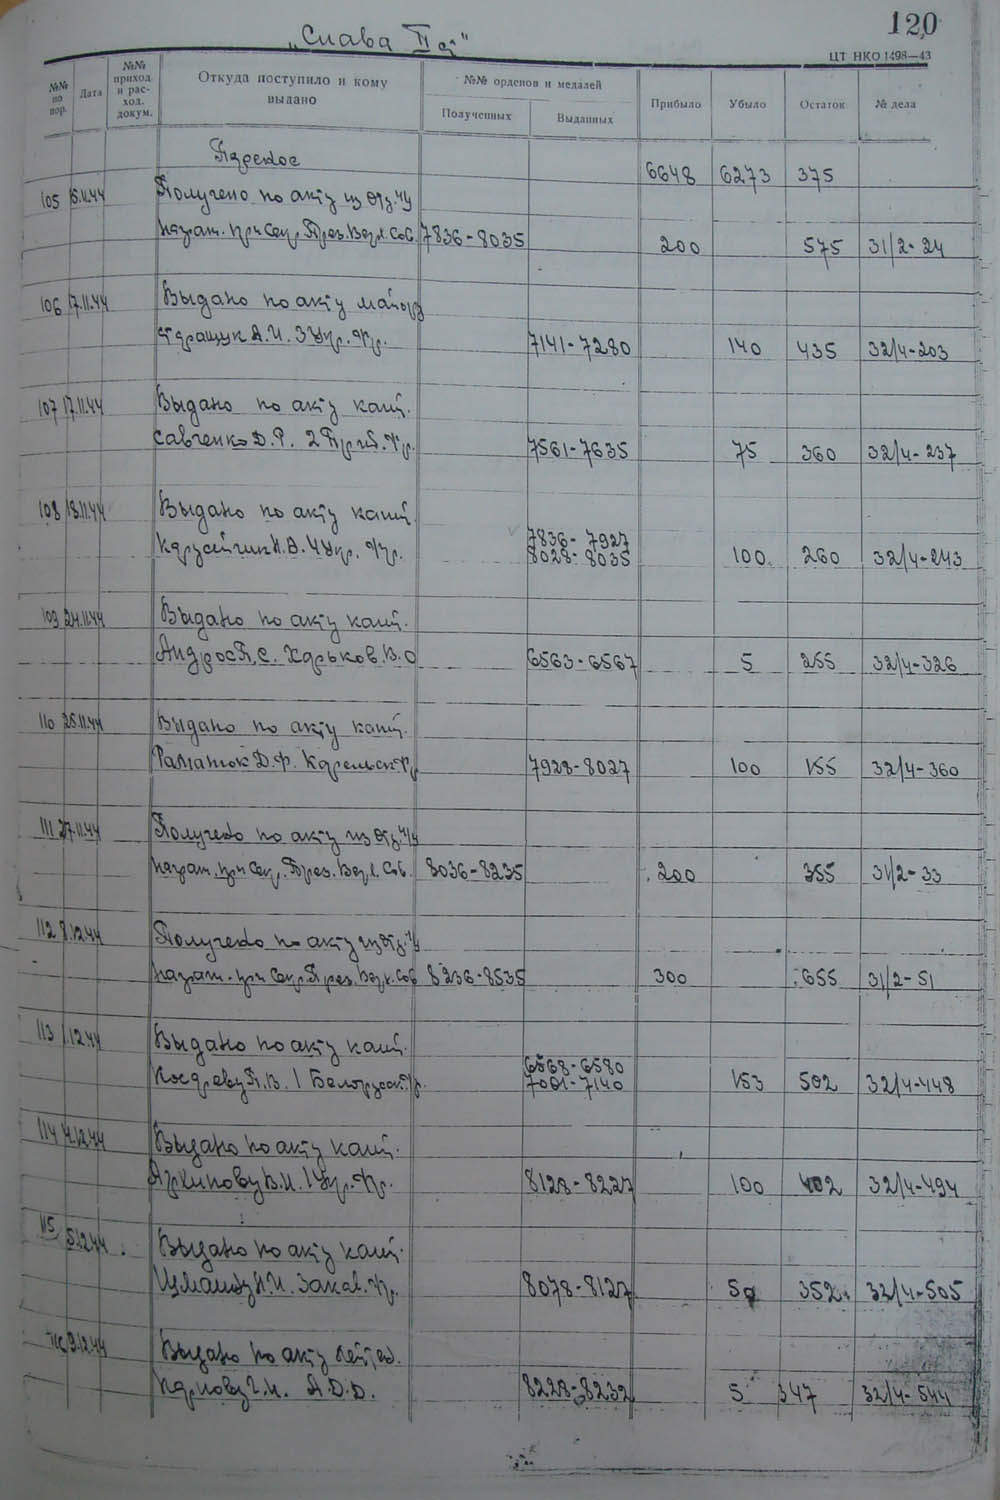 120
„Слава II ст"
ЦТ НКО 1498—43
№№ по пор.
Дата
№№ приход. и рас- ход. докум.
Откуда поступило и кому выдано
№№ орденов и медалей
Полученных
Выданных
Прибыло
Убыло
Остаток
№ дела
Перенос 6648 6273 375
105 15.11.44 Получено по акту из отд. уч
награж. при Секр. През. Верх. Сов. 7836-8035 200 575 31/2-24
106 17.11.44 Выдано по акту майору
А.И. 3 Укр. Фр. 7141-7280 140 435 32/4-203
107 17.11.44 Выдано по акту кап.
Савченко Д.Р. 2 Приб. Фр. 7561-7635 75 360 32/4-237
108 18.11.44 Выдано по акту кап.
4 Укр. Фр. 7836-7927
8028-8035 100 260 32/4-243
109 24.11.44 Выдано по акту кап.
Андрос П.С. Харьков. В.О 6563-6567 5 255 32/4-326
110 25.11.44 Выдано по акту кап.
Д.Ф. Карельск. Фр 7928-8027 100 155 32/4-360
111 27.11.44 Получено по акту из отд. уч
награж. при Секр. През. Верх. Сов. 8036-8235 200 355 31/2-33
112 8.12.44 Получено по акту из отд. уч
награж. при Секр. През. Верх. Сов 8236-8535 300 655 31/2-51
113 1.12.44 Выдано по акту кап.
П.В. 1 Белорусск. Фр. 6568-6580
7001-7140 153 502 32/4-448
114 4.12.44 Выдано по акту кап.
В.И. 1 Укр. Фр. 8128-8227 100 402 32/4-494
115 5.12.44 Выдано по акту кап.
Закав. Фр. 8078-8127 50 352 32/4-505
116 9.12.44 Выдано по акту лейтен.
Карпову Г.И. А.Д.Д. 8228-8232 5 347 32/4-544